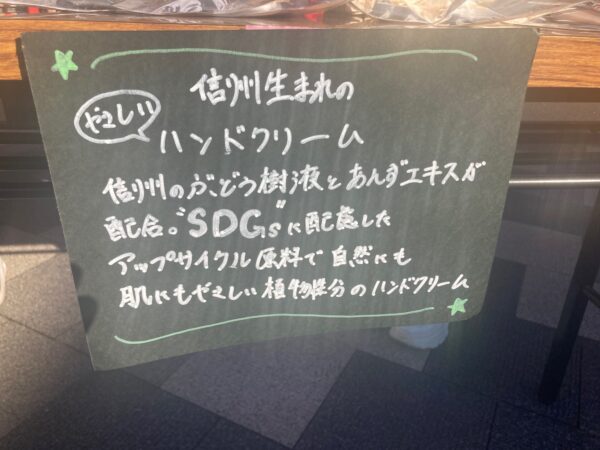 信州生まれの
やさしい
ハンドクリーム
信州のぶどう樹液とあんずエキスが
配合。"SDGs"に配慮した
アップサイクル原料で自然にも
肌にもやさしい植物成分のハンドクリーム